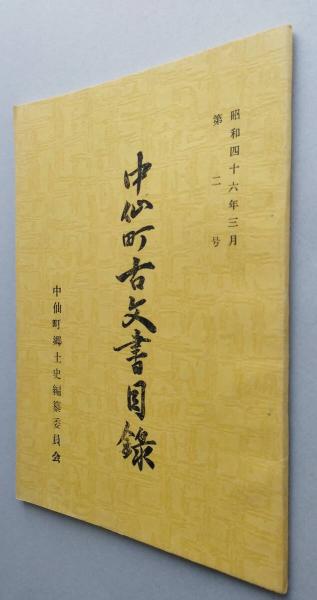 昭和四十六年三月
第二号
中仙町古文書目録
中仙町郷土史編纂委員会